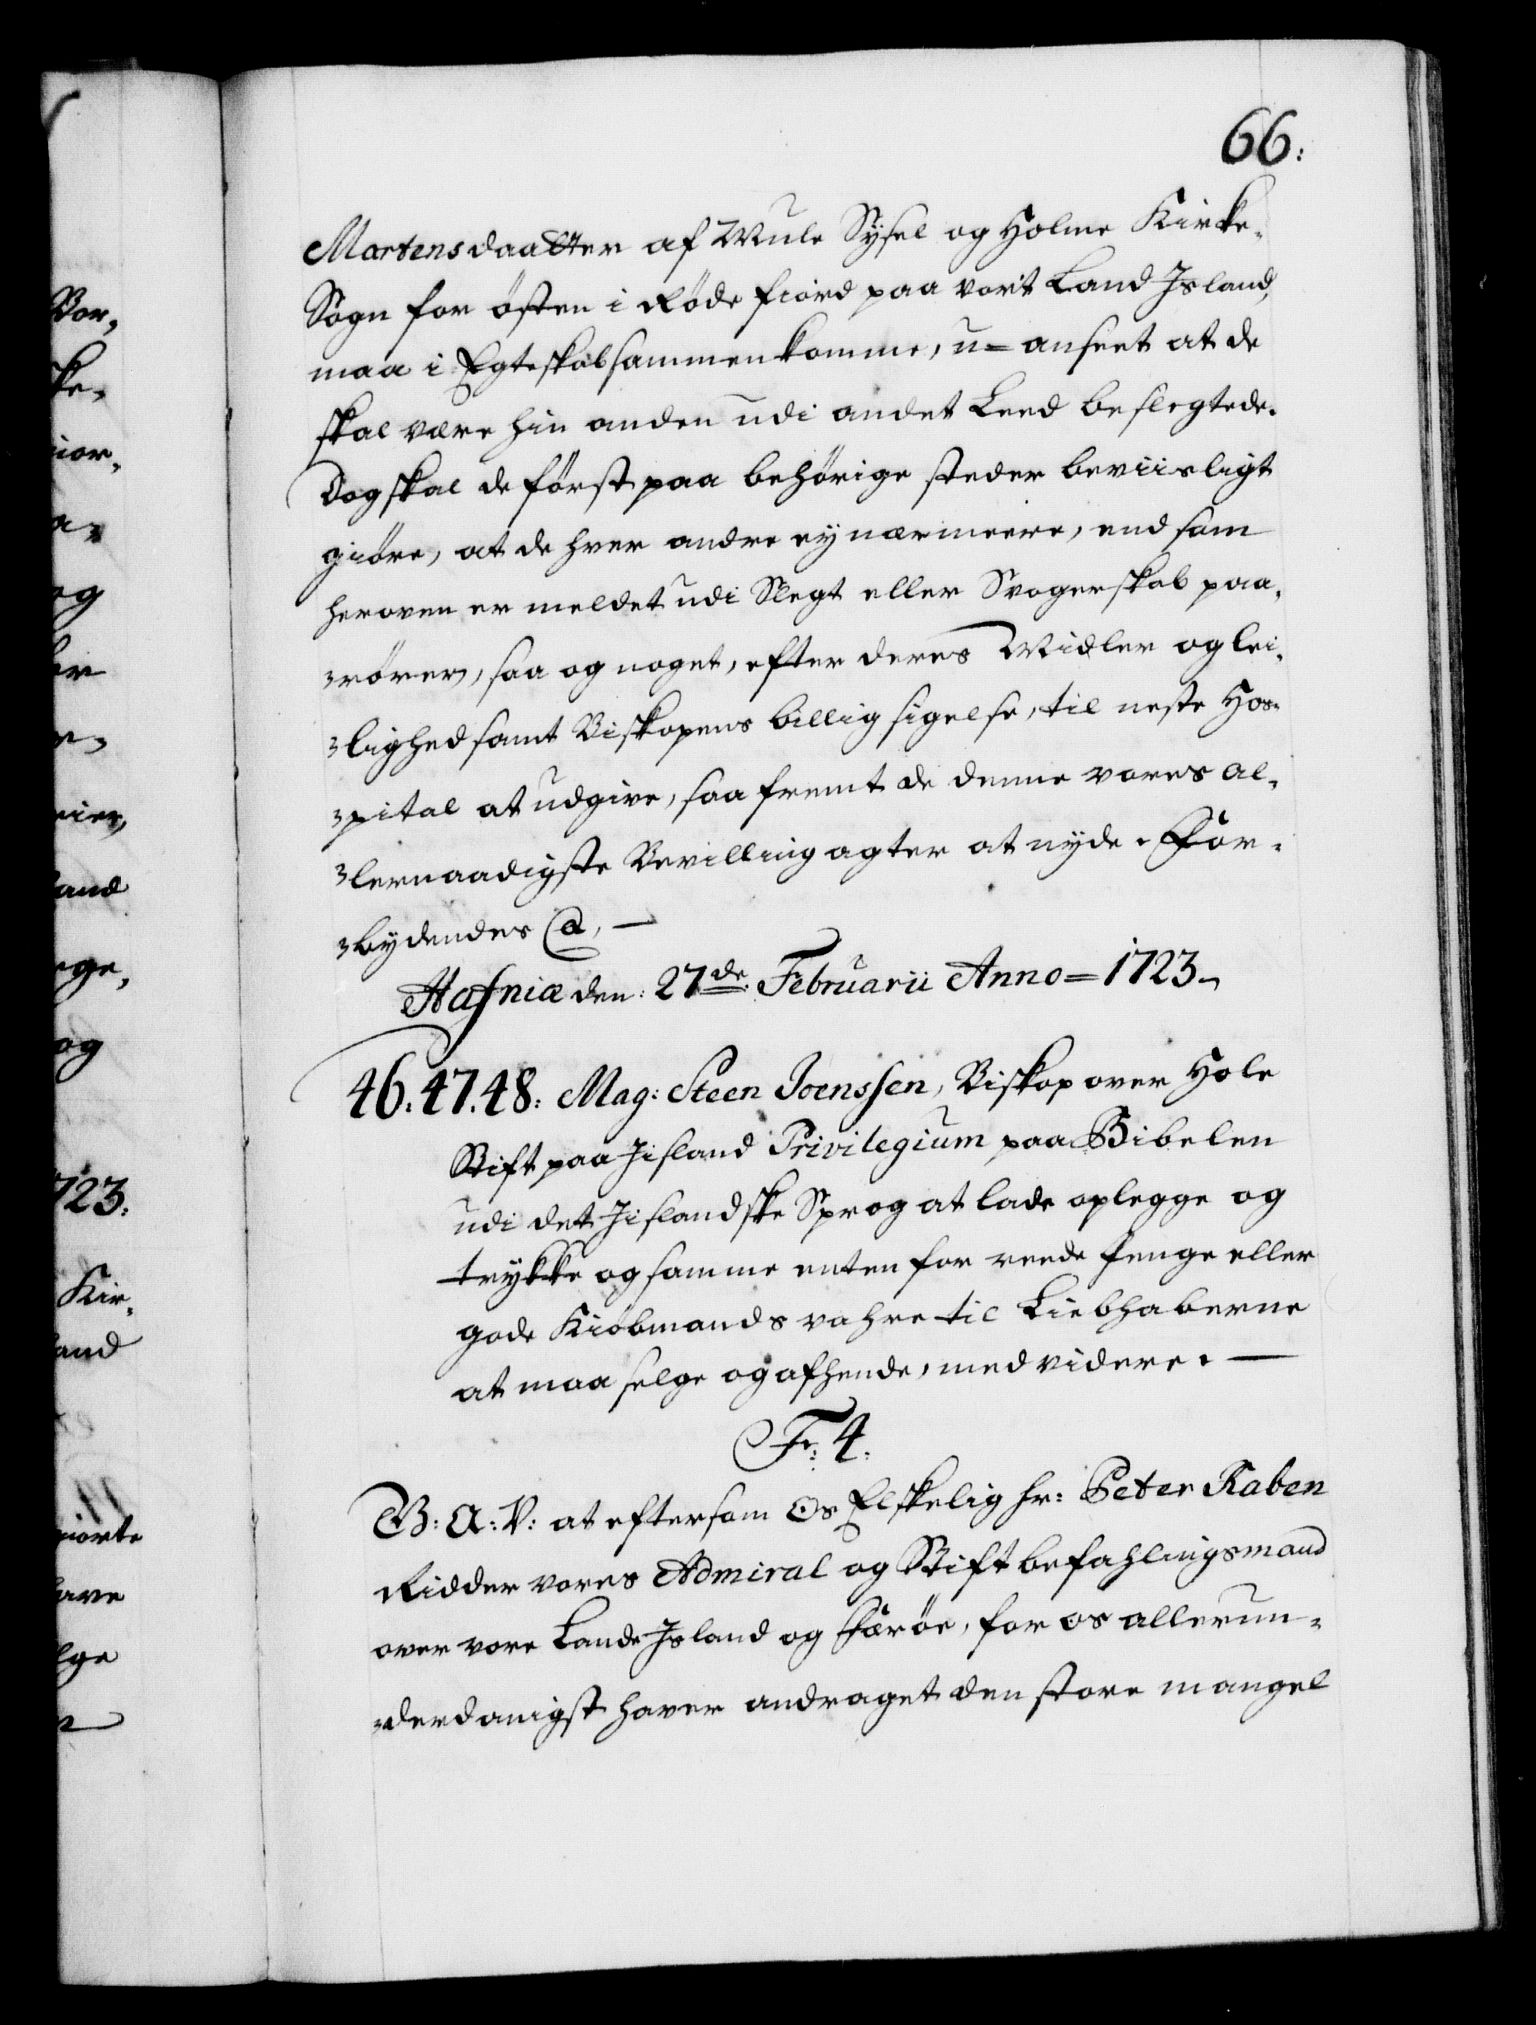 66:
Mortensdaatter af Mule Sysel og Holme Kirke-
Sogn for østen i Røde fiord paa vort Land Island,
maa i Egteskab sammenkomme, u-anseet at de
skal være hin anden udi andet Leed beslegtede.
Dog skal de først paa behørige steder beviisligt
giøre, at de hver andre ey nærmeere, end som
heroven er meldet udi Slegt eller Svogerskab paa-
rører, saa og noget, efter deres Midler og lei-
lighed samt Biskopens billig sigelse, til neste Hos-
pital at udgive, saa fremt de denne vores al-
lernaadigste Bevilling agter at nyde. For-
bydendes @, —
Hafniæ den: 27de Februarii Anno=1723.
46. 47. 48: Mag: Steen Joenssen, Biskop over Hole
Stift paa Jisland Privilegium paa Bibelen
udi det Jislandske Sprog at lade oplegge og
trykke og samme enten for reede Penge eller
gode Kiøbmands vahre til Liebhaberne
at maa selge og afhende, med videre. —
Fr: 4.
G: A: V: at eftersom Os Elskelig hr: Peter Raben
Ridder vores Admiral og Stiftbefahlingsmand
over vore Lande Island og Færøe, for os allerun-
derdanigst haver andraget den store mangel
Bor,
ke,
ior,
a,
og
er
e,
eier,
and
ge,
og
1723:
Kir,
and
iorte
ave
lge